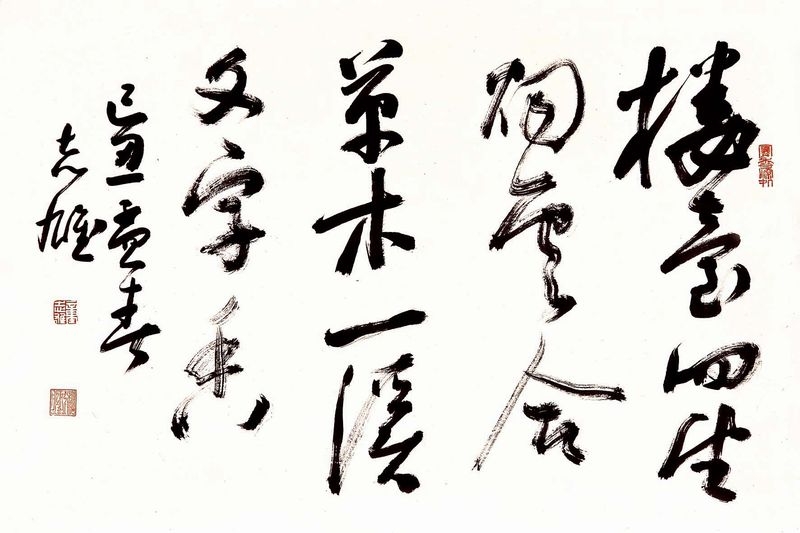 樓臺四望
烟雲合
草木一溪
文字香
己丑孟春
志雄